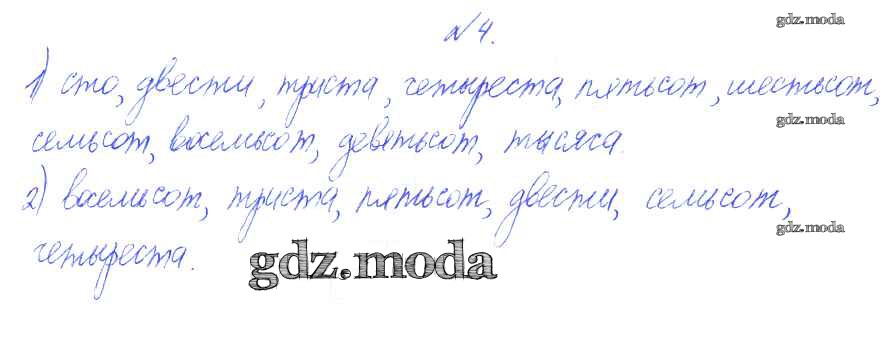 №4.
gdz.moda
1) сто, двести, триста, четыреста, пятьсот, шестьсот,
gdz.moda
семьсот, восемьсот, девятьсот, тысяча.
2) восемьсот, триста, пятьсот, двести, семьсот,
gdz.moda
четыреста.
gdz.moda